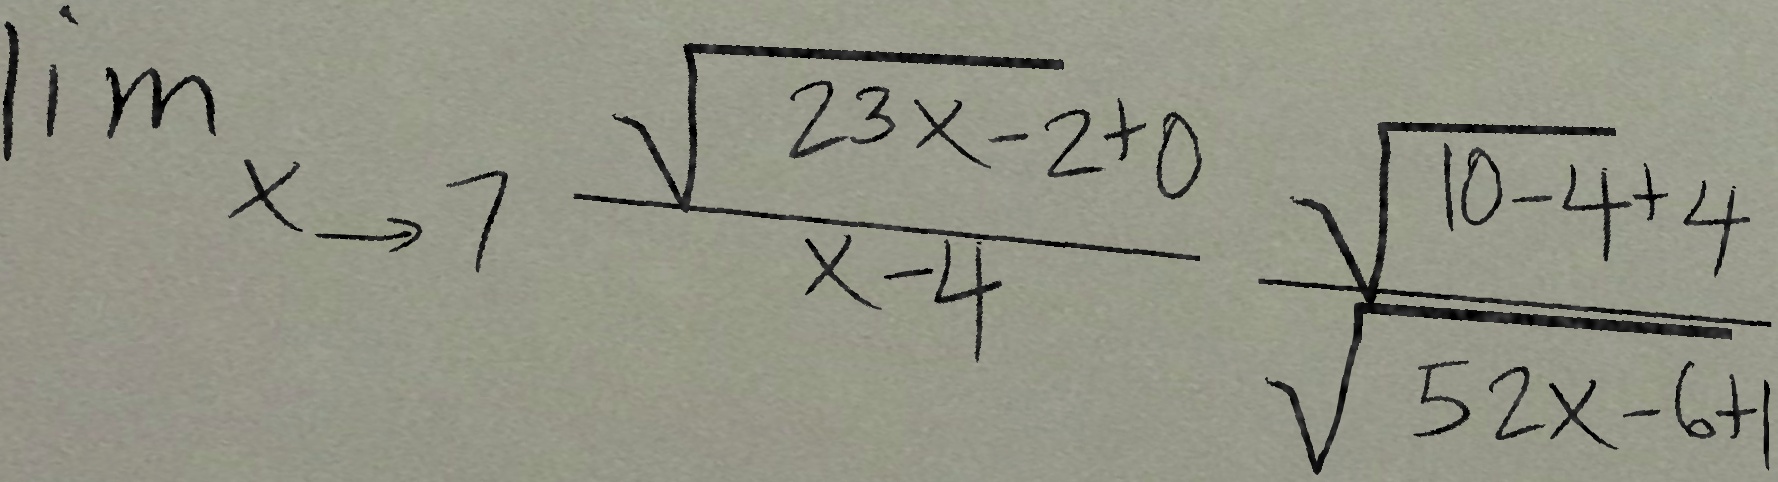 lim x→7 \frac{\sqrt{23x-2}+0}{x-4} \frac{\sqrt{10-4}+4}{\sqrt{52x-6+1}}